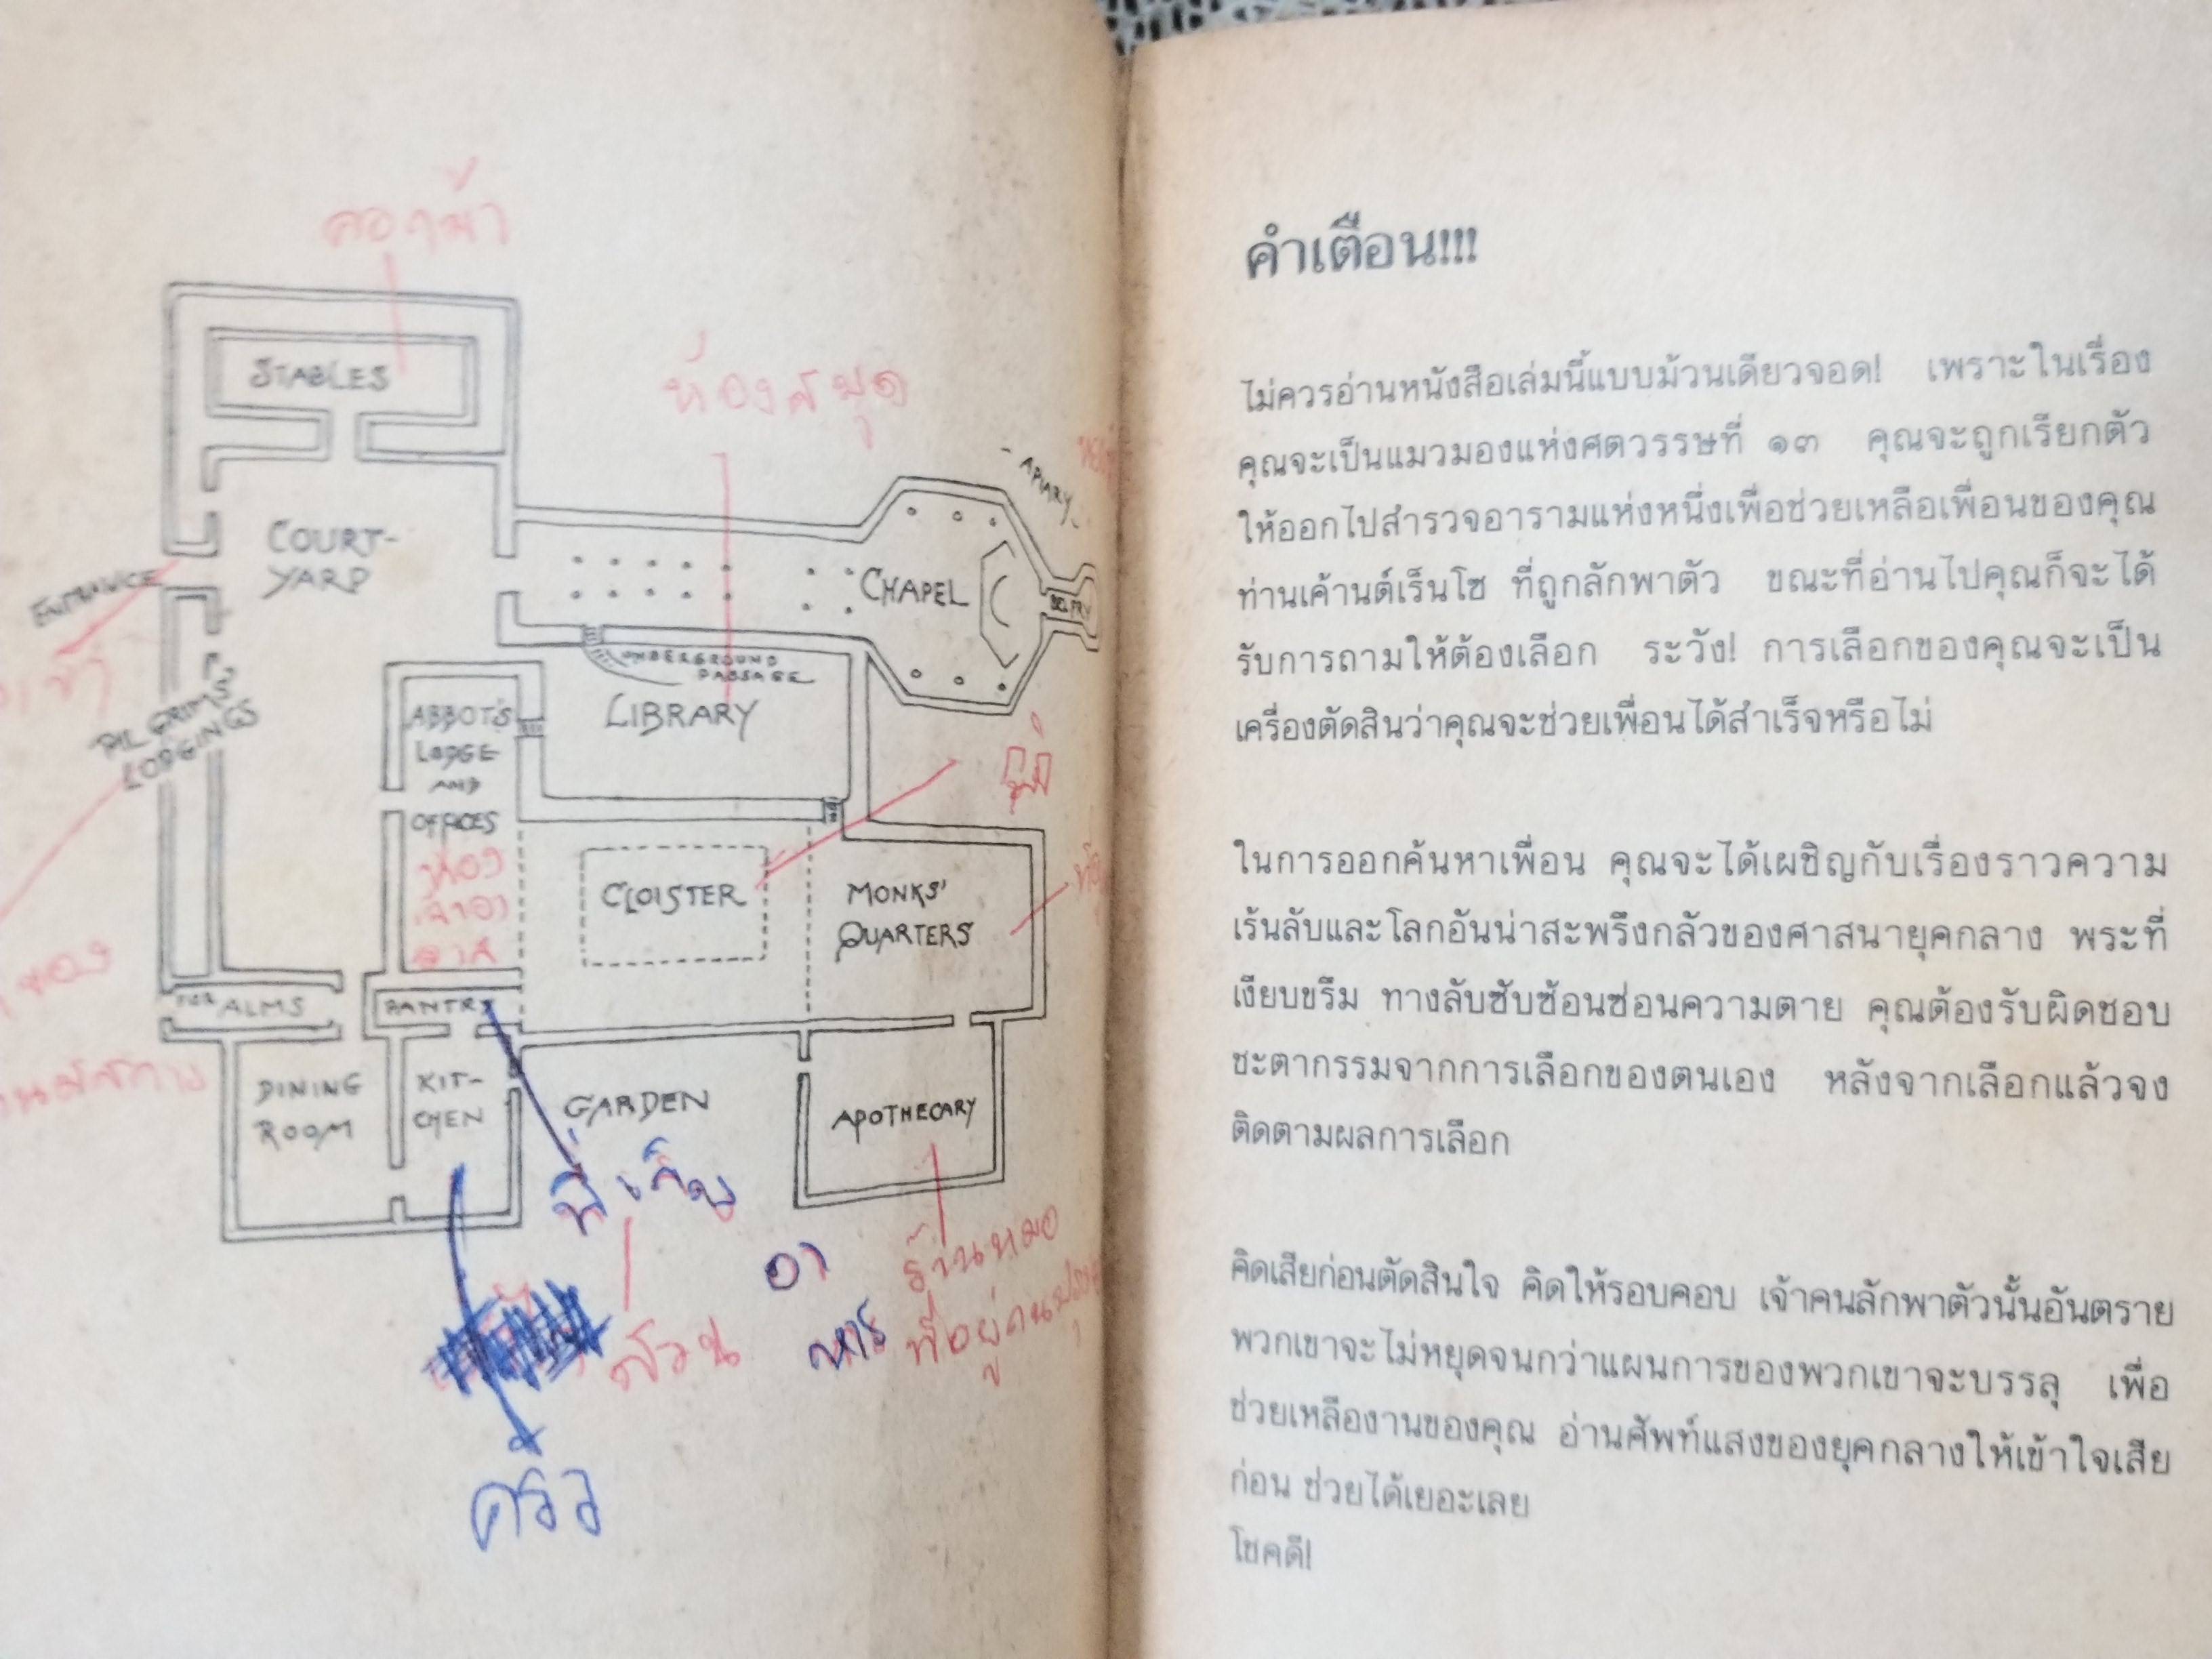 คอกม้า
STABLES
ห้องสมุด
- APIARY -
COURT-
YARD
ENTRANCE
CHAPEL
BELFRY
UNDERGROUND
PASSAGE
PILGRIMS'
LODGINGS
ABBOT'S
LODGE
AND
OFFICES
LIBRARY
ห้อง
เจ้าอา
วาส
CLOISTER
MONKS'
QUARTERS
FOR ALMS
PANTRY
DINING
ROOM
KIT-
CHEN
GARDEN
APOTHECARY
ที่เก็บ
อา
หาร
สวน
ร้านหมอ
ที่อยู่คนป่วย
ครัว
คำเตือน!!!
ไม่ควรอ่านหนังสือเล่มนี้แบบม้วนเดียวจอด! เพราะในเรื่อง
คุณจะเป็นแมวมองแห่งศตวรรษที่ ๑๓ คุณจะถูกเรียกตัว
ให้ออกไปสำรวจอารามแห่งหนึ่งเพื่อช่วยเหลือเพื่อนของคุณ
ท่านเค้านต์เร็นโซ ที่ถูกลักพาตัว ขณะที่อ่านไปคุณก็จะได้
รับการถามให้ต้องเลือก ระวัง! การเลือกของคุณจะเป็น
เครื่องตัดสินว่าคุณจะช่วยเพื่อนได้สำเร็จหรือไม่
ในการออกค้นหาเพื่อน คุณจะได้เผชิญกับเรื่องราวความ
เร้นลับและโลกอันน่าสะพรึงกลัวของศาสนายุคกลาง พระที่
เงียบขรึม ทางลับซับซ้อนซ่อนความตาย คุณต้องรับผิดชอบ
ชะตากรรมจากการเลือกของตนเอง หลังจากเลือกแล้วจง
ติดตามผลการเลือก
คิดเสียก่อนตัดสินใจ คิดให้รอบคอบ เจ้าคนลักพาตัวนั้นอันตราย
พวกเขาจะไม่หยุดจนกว่าแผนการของพวกเขาจะบรรลุ เพื่อ
ช่วยเหลืองานของคุณ อ่านศัพท์แสงของยุคกลางให้เข้าใจเสีย
ก่อน ช่วยได้เยอะเลย
โชคดี!